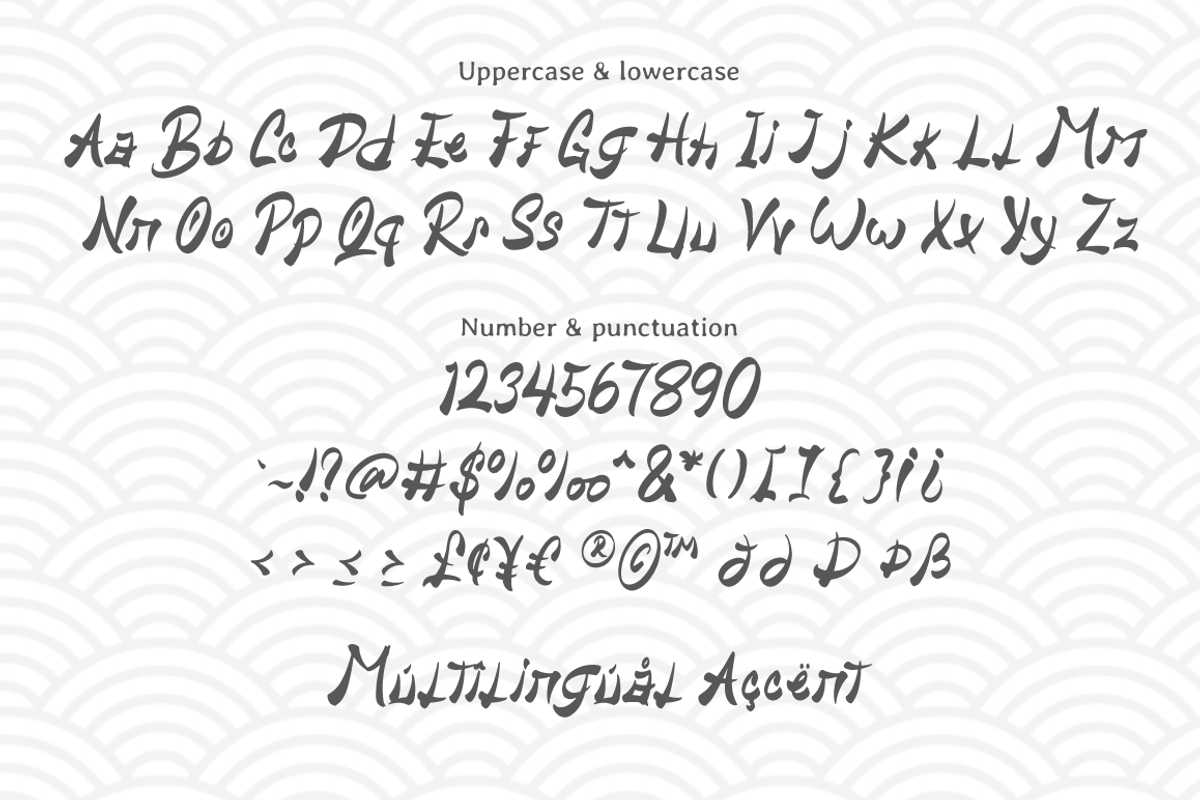 Uppercase & lowercase
Aa Bb Cc Dd Ee Ff Gg Hh Ii Jj Kk Ll Mm
Nn Oo Pp Qq Rr Ss Tt Uu Vv Ww Xx Yy Zz
Number & punctuation
1234567890
`~!?@#$%‰^&*()[]{}¡¿
< > ≤ ≥ £¢¥€ ®©™ ∂ð Ð Þß
Múltîlingúål Aççënt